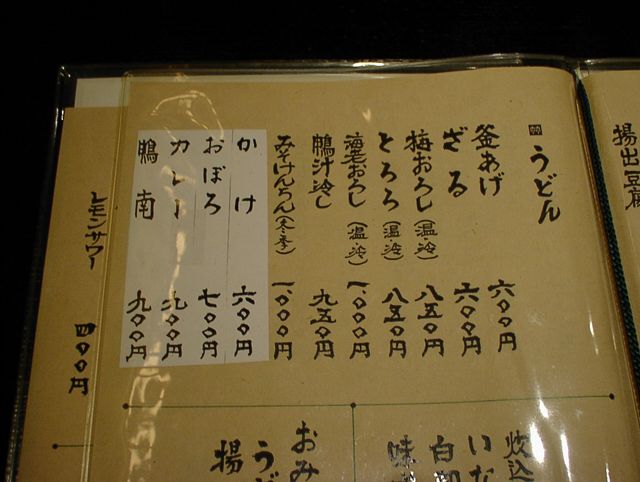 揚出豆腐
うどん
釜あげ 六〇〇円
ざる 六〇〇円
梅おろし(温・冷) 八五〇円
とろろ(温・冷) 八五〇円
海老おろし(温・冷) 一、〇〇〇円
鴨汁冷し 九五〇円
みそけんちん(冬季) 一、〇〇〇円
かけ 六〇〇円
おぼろ 七〇〇円
カレー 九〇〇円
鴨南 九〇〇円
レモンサワー 四〇〇円
炊込
いな
白
味
おみ
うど
揚